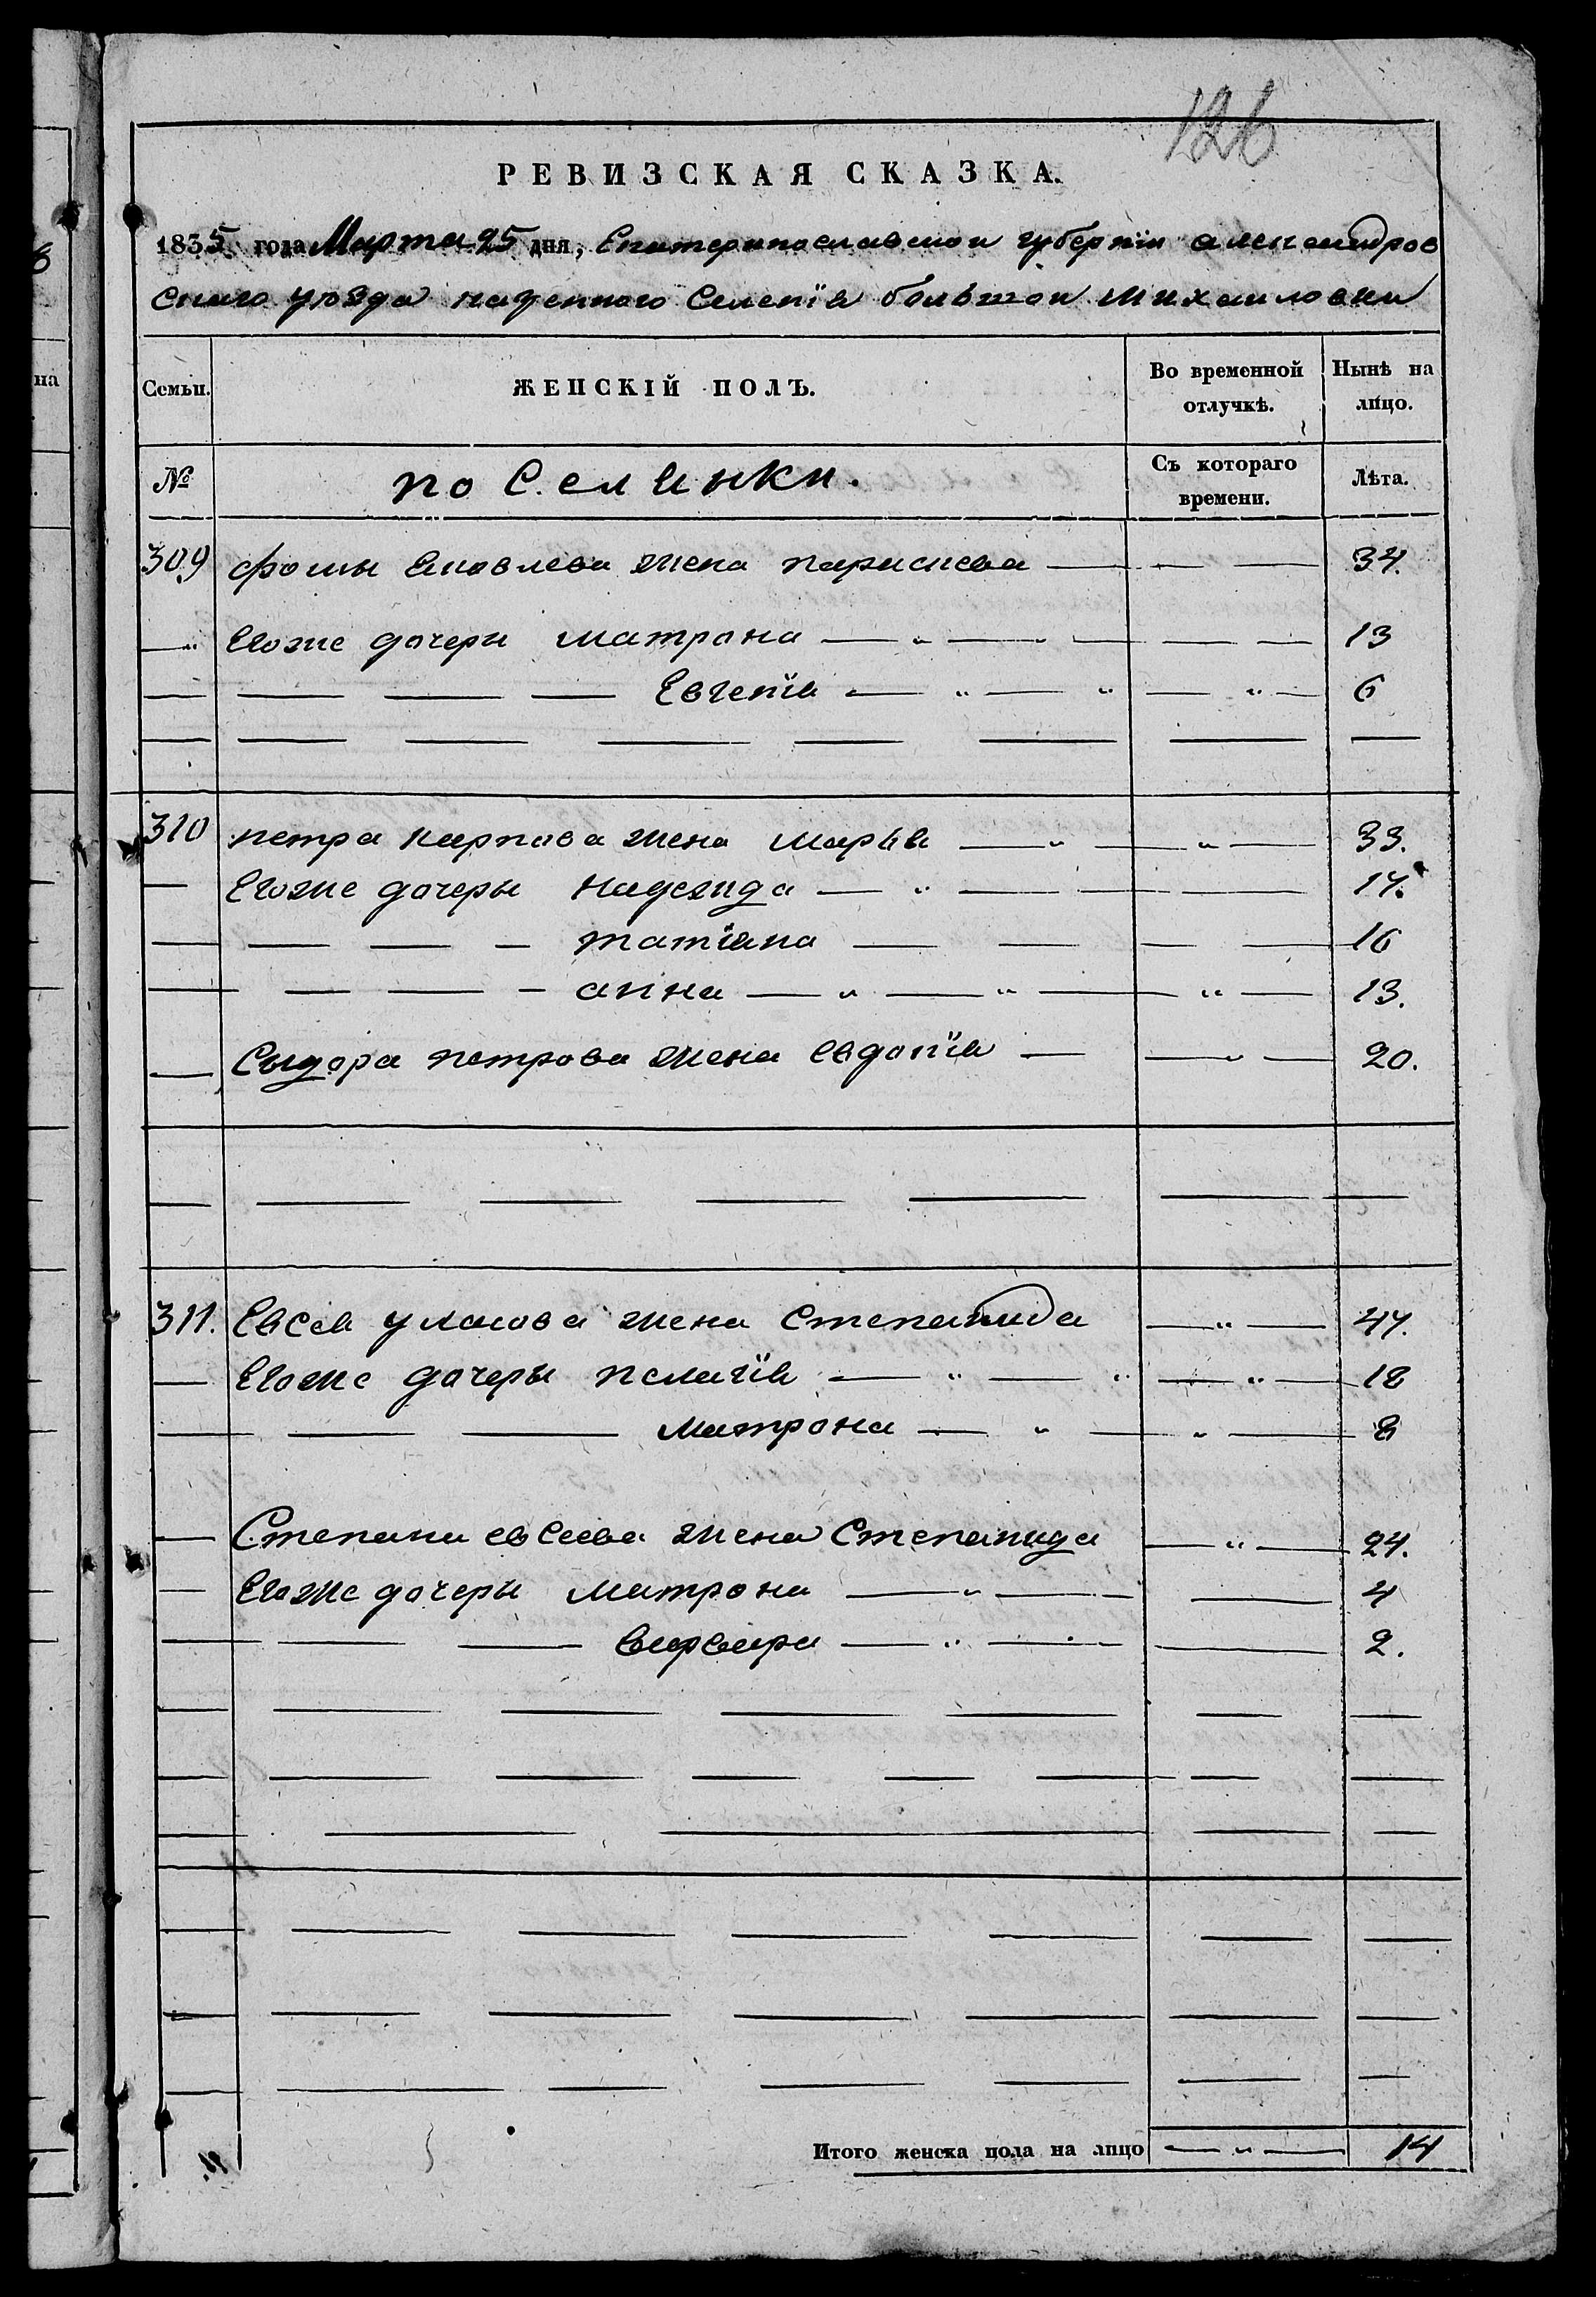 126
РЕВИЗСКАЯ СКАЗКА.
1835 года Марта 25 дня, Екатеринославской губернїи александров
скаго уѣзда казенного Селенїя большой михайловки
Семьи. ЖЕНСКІЙ ПОЛЪ. Во временной отлучкѣ. Нынѣ на лицо.
№ поселянки. Съ котораго времени. Лѣта.
309 фомы Яковлева жена параскева 34.
Егоже дочери матрона 13
Евгенїя 6
310 петра карпова жена марья 33.
Егоже дочеры надежда 17.
татїана 16
анна 13.
Сыдора петрова жена евдокїя 20.
311. Евсея жена Степанида 47.
Егоже дочеры пелагїя 18
матрона 8
Степана евсеева жена Степанида 24.
Егоже дочеры матрона 4
варвара 2.
Итого женска пола на лицо 14
на